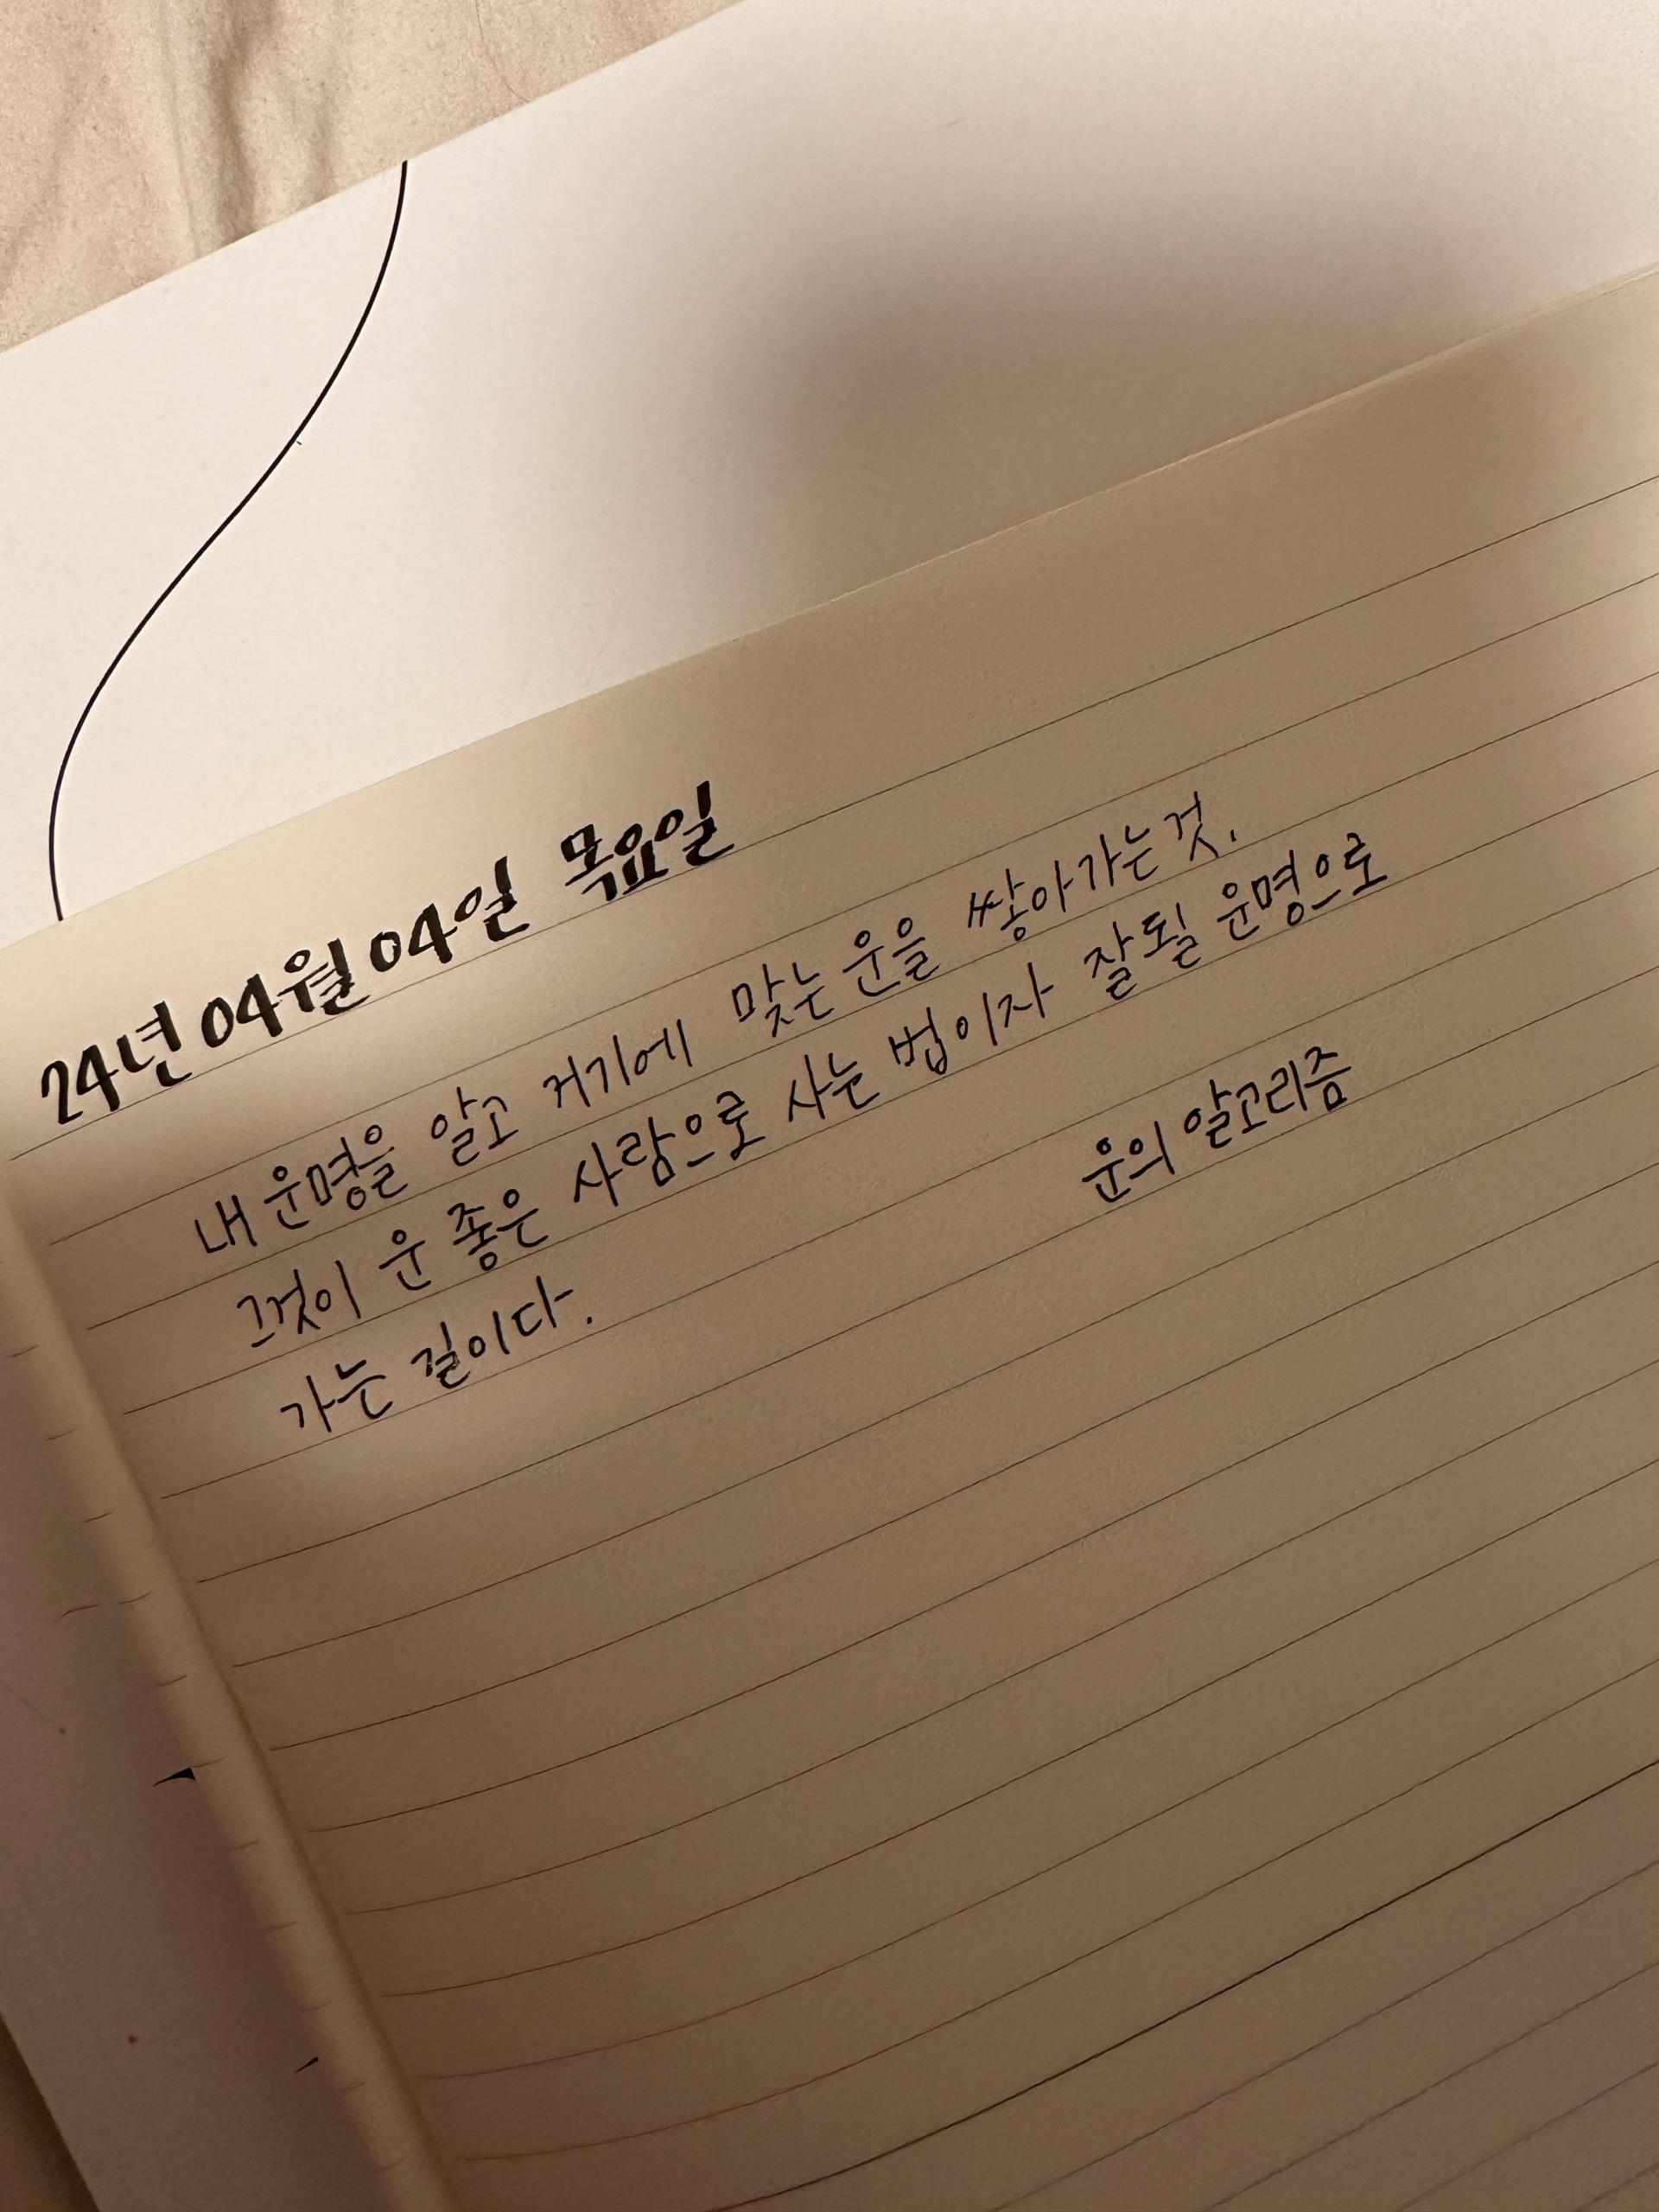 24년 04월 04일 목요일
내 운명을 알고 거기에 맞는 운을 쌓아가는것.
그것이 운 좋은 사람으로 사는 법이자 잘될 운명으로
가는 길이다.
운의 알고리즘